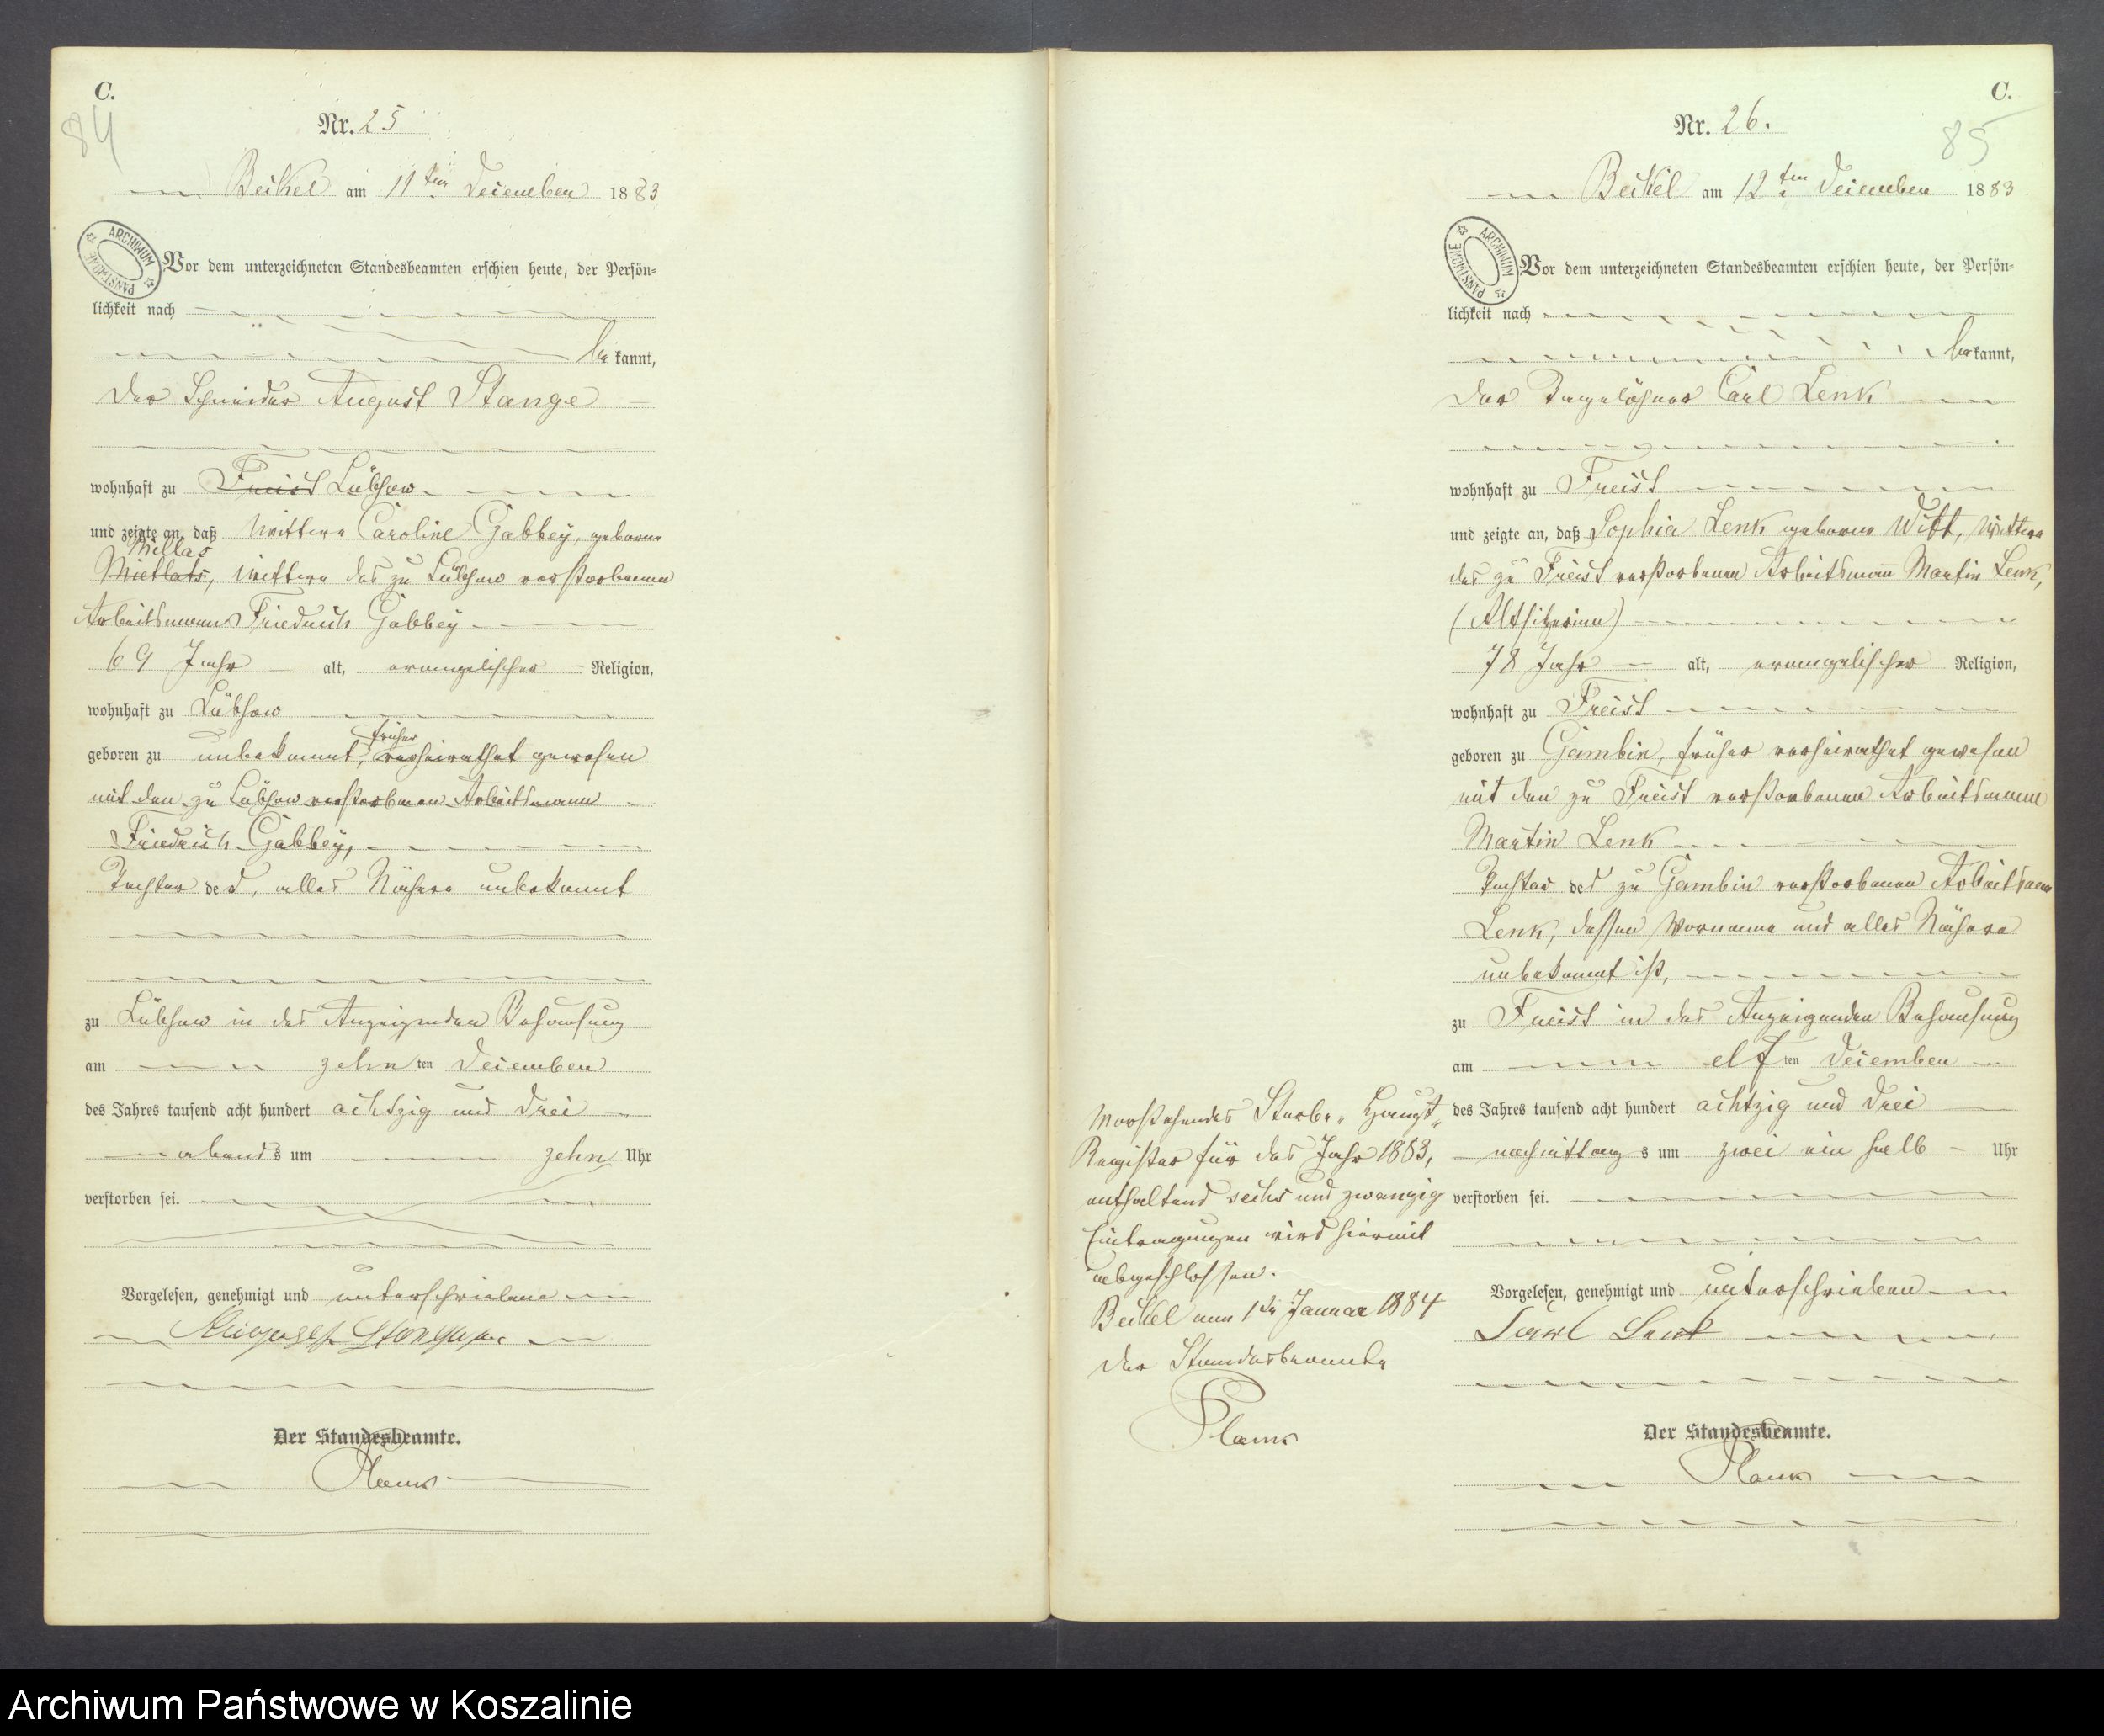 C.
84
Nr. 25
Beckel am 11ten December 1883
ARCHIWUM PAŃSTWOWE
Vor dem unterzeichneten Standesbeamten erschien heute, der Persön-
lichkeit nach
bekannt,
der Schneider August Stange
wohnhaft zu Freist Lübsow
und zeigte an, daß Wittwe Caroline Gabbey, geborene
Miller
Mietlats, Wittwe des zu Lübsow verstorbenen
Arbeitsmanns Friedrich Gabbey
69 Jahr alt, evangelischer Religion,
wohnhaft zu Lübsow
früher
geboren zu unbekannt, verheirathet gewesen
mit den zu Lübsow verstorbenen Arbeitsmann
Friedrich Gabbey,
Tochter des, alles Nähere unbekannt
zu Lübsow in des Anzeigenden Behausung
am zehn ten December
des Jahres tausend acht hundert achtzig und drei
abends um zehn Uhr
verstorben sei.
Vorgelesen, genehmigt und unterschrieben
August Stange
Der Standesbeamte.
C.
85
Nr. 26.
Beckel am 12ten December 1883
ARCHIWUM PAŃSTWOWE
Vor dem unterzeichneten Standesbeamten erschien heute, der Persön-
lichkeit nach
bekannt,
der Tagelöhner Carl Lenk
wohnhaft zu Freist
und zeigte an, daß Sophia Lenk geborene Witt, Wittwe
des zu Freist verstorbenen Arbeitsmann Martin Lenk,
(Altsitzerinn)
78 Jahr alt, evangelischer Religion,
wohnhaft zu Freist
geboren zu Gambin, früher verheirathet gewesen
mit den zu Freist verstorbenen Arbeitsmann
Martin Lenk
Tochter des zu Gambin verstorbenen Arbeitsmann
Lenk, dessen Vorname und alles Nähere
unbekannt ist,
zu Freist in des Anzeigenden Behausung
am elf ten December
des Jahres tausend acht hundert achtzig und drei
nachmittags um zwei ein halb Uhr
verstorben sei.
Vorgelesen, genehmigt und unterschrieben
Carl Lenk
Der Standesbeamte.
Vorstehendes Sterbe-Haupt-
Register für das Jahr 1883,
enthaltend sechs und zwanzig
Eintragungen wird hiermit
abgeschlossen.
Beckel am 1ten Januar 1884
Der Standesbeamte
Archiwum Państwowe w Koszalinie